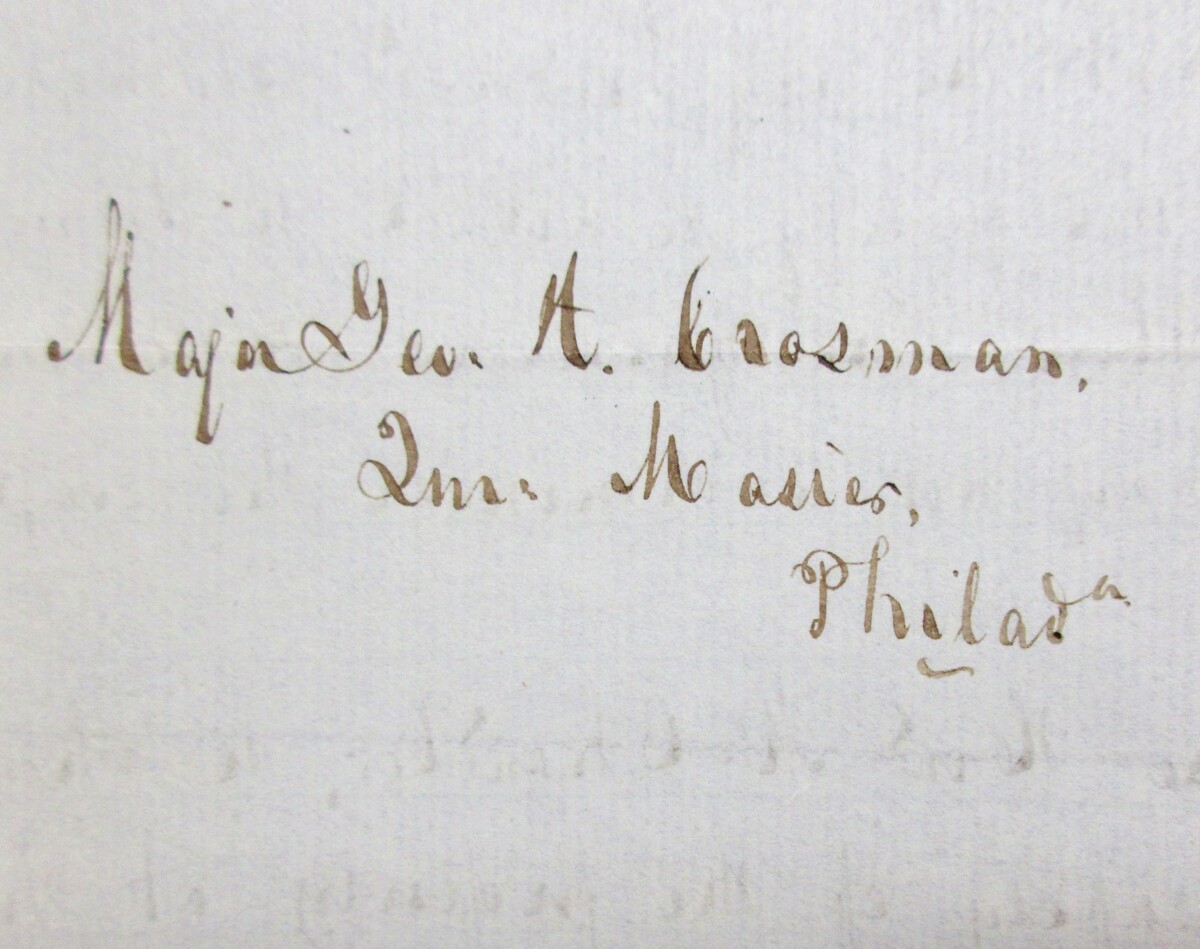 Major Geo. H. Crosman,
Qur. Master,
Philad^a